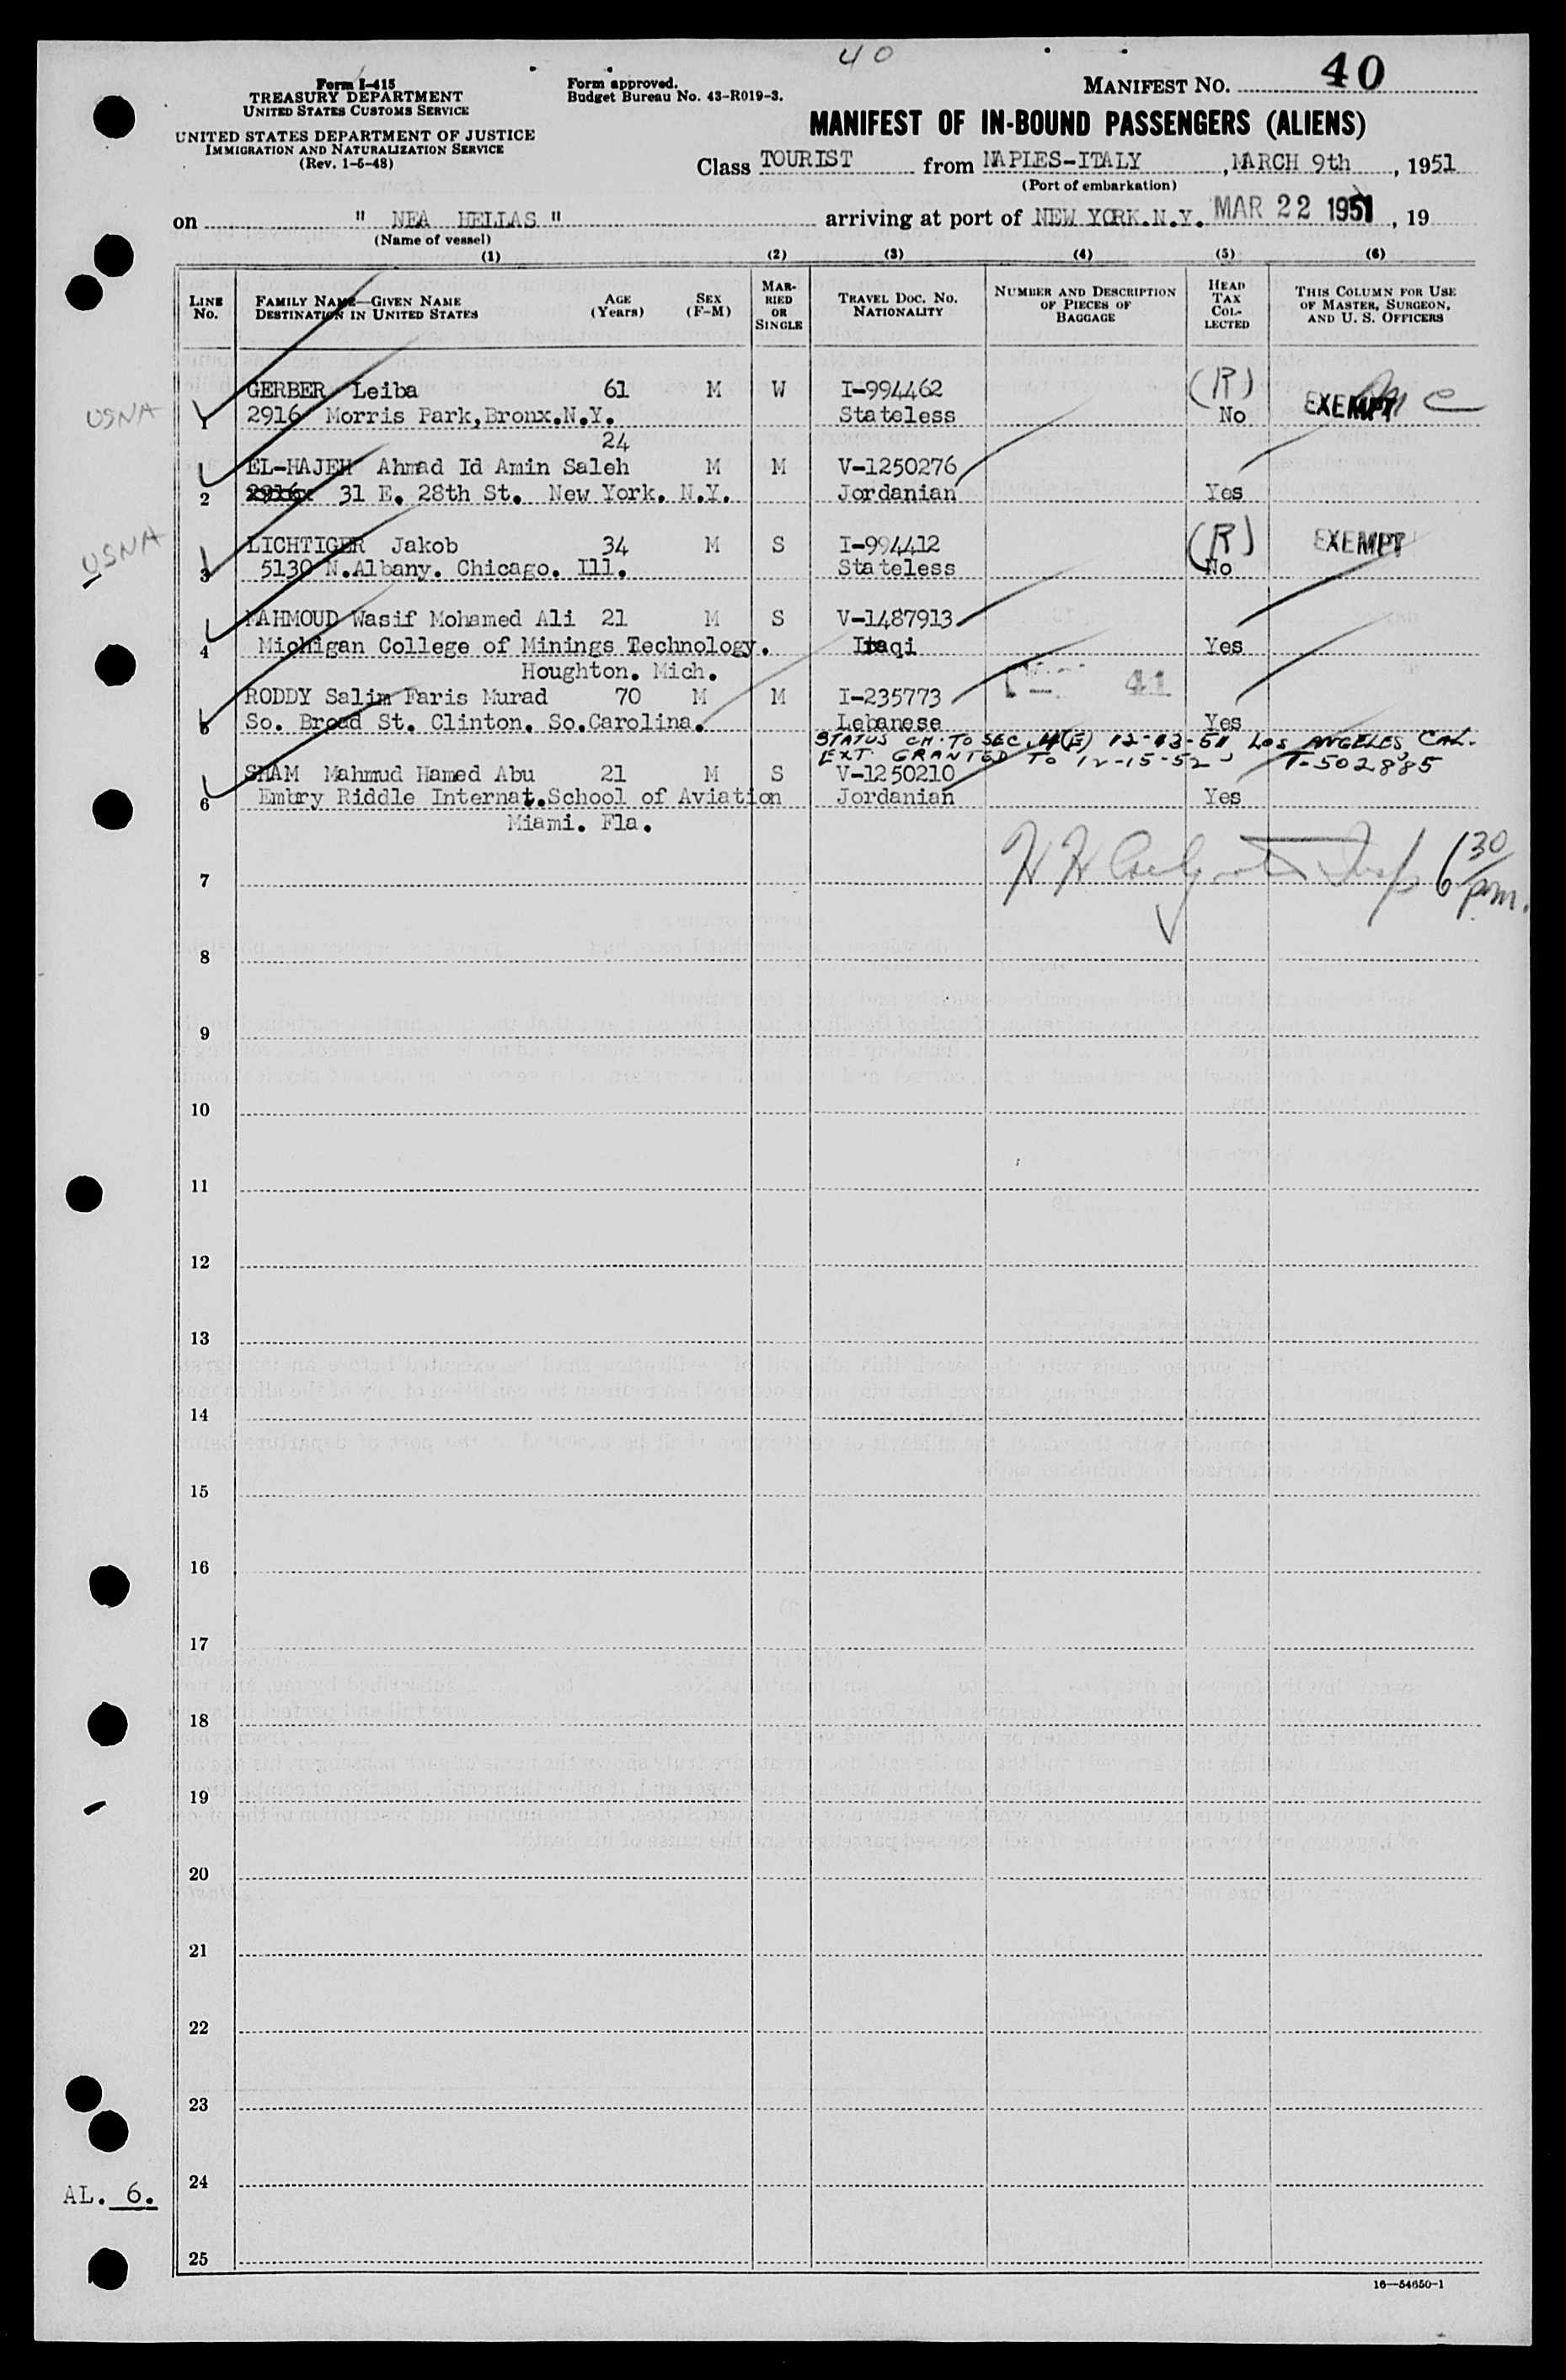 40
Form I-415
TREASURY DEPARTMENT
UNITED STATES CUSTOMS SERVICE
UNITED STATES DEPARTMENT OF JUSTICE
IMMIGRATION AND NATURALIZATION SERVICE
(Rev. 1-5-48)
Form approved.
Budget Bureau No. 43-R019-3.
MANIFEST NO. 40
MANIFEST OF IN-BOUND PASSENGERS (ALIENS)
Class TOURIST from NAPLES-ITALY, MARCH 9th, 1951
(Port of embarkation)
on " NEA HELLAS " arriving at port of NEW YORK.N.Y. MAR 22 1951, 19
(Name of vessel)
(1) (2) (3) (4) (5) (6)
LINE No. FAMILY NAME—GIVEN NAME DESTINATION IN UNITED STATES AGE (Years) SEX (F-M) MARRIED OR SINGLE TRAVEL DOC. NO. NATIONALITY NUMBER AND DESCRIPTION OF PIECES OF BAGGAGE HEAD TAX COLLECTED THIS COLUMN FOR USE OF MASTER, SURGEON, AND U. S. OFFICERS
GERBER Leiba 61 M W I-994462 (R) EXEMPT
USNA 1 2916 Morris Park,Bronx.N.Y. Stateless No
24
EL-HAJEH Ahmad Id Amin Saleh M M V-1250276
2 2916 31 E. 28th St. New York. N.Y. Jordanian Yes
USNA LICHTIGER Jakob 34 M S I-994412 (R) EXEMPT
3 5130 N.Albany. Chicago. Ill. Stateless No
MAHMOUD Wasif Mohamed Ali 21 M S V-1487913
4 Michigan College of Minings Technology. Iraqi Yes
Houghton. Mich.
RODDY Salim Faris Murad 70 M M I-235773 41
5 So. Broad St. Clinton. So.Carolina. Lebanese Yes
STATUS CH. TO SEC. 4(E) 12-13-51 LOS ANGELES, CAL.
EXT. GRANTED TO 12-15-52 T-502885
SHAM Mahmud Hamed Abu 21 M S V-1250210
6 Embry Riddle Internat.School of Aviation Jordanian Yes
Miami. Fla.
7 6 30/pm.
8
9
10
11
12
13
14
15
16
17
18
19
20
21
22
23
AL. 6. 24
25
16—54650-1